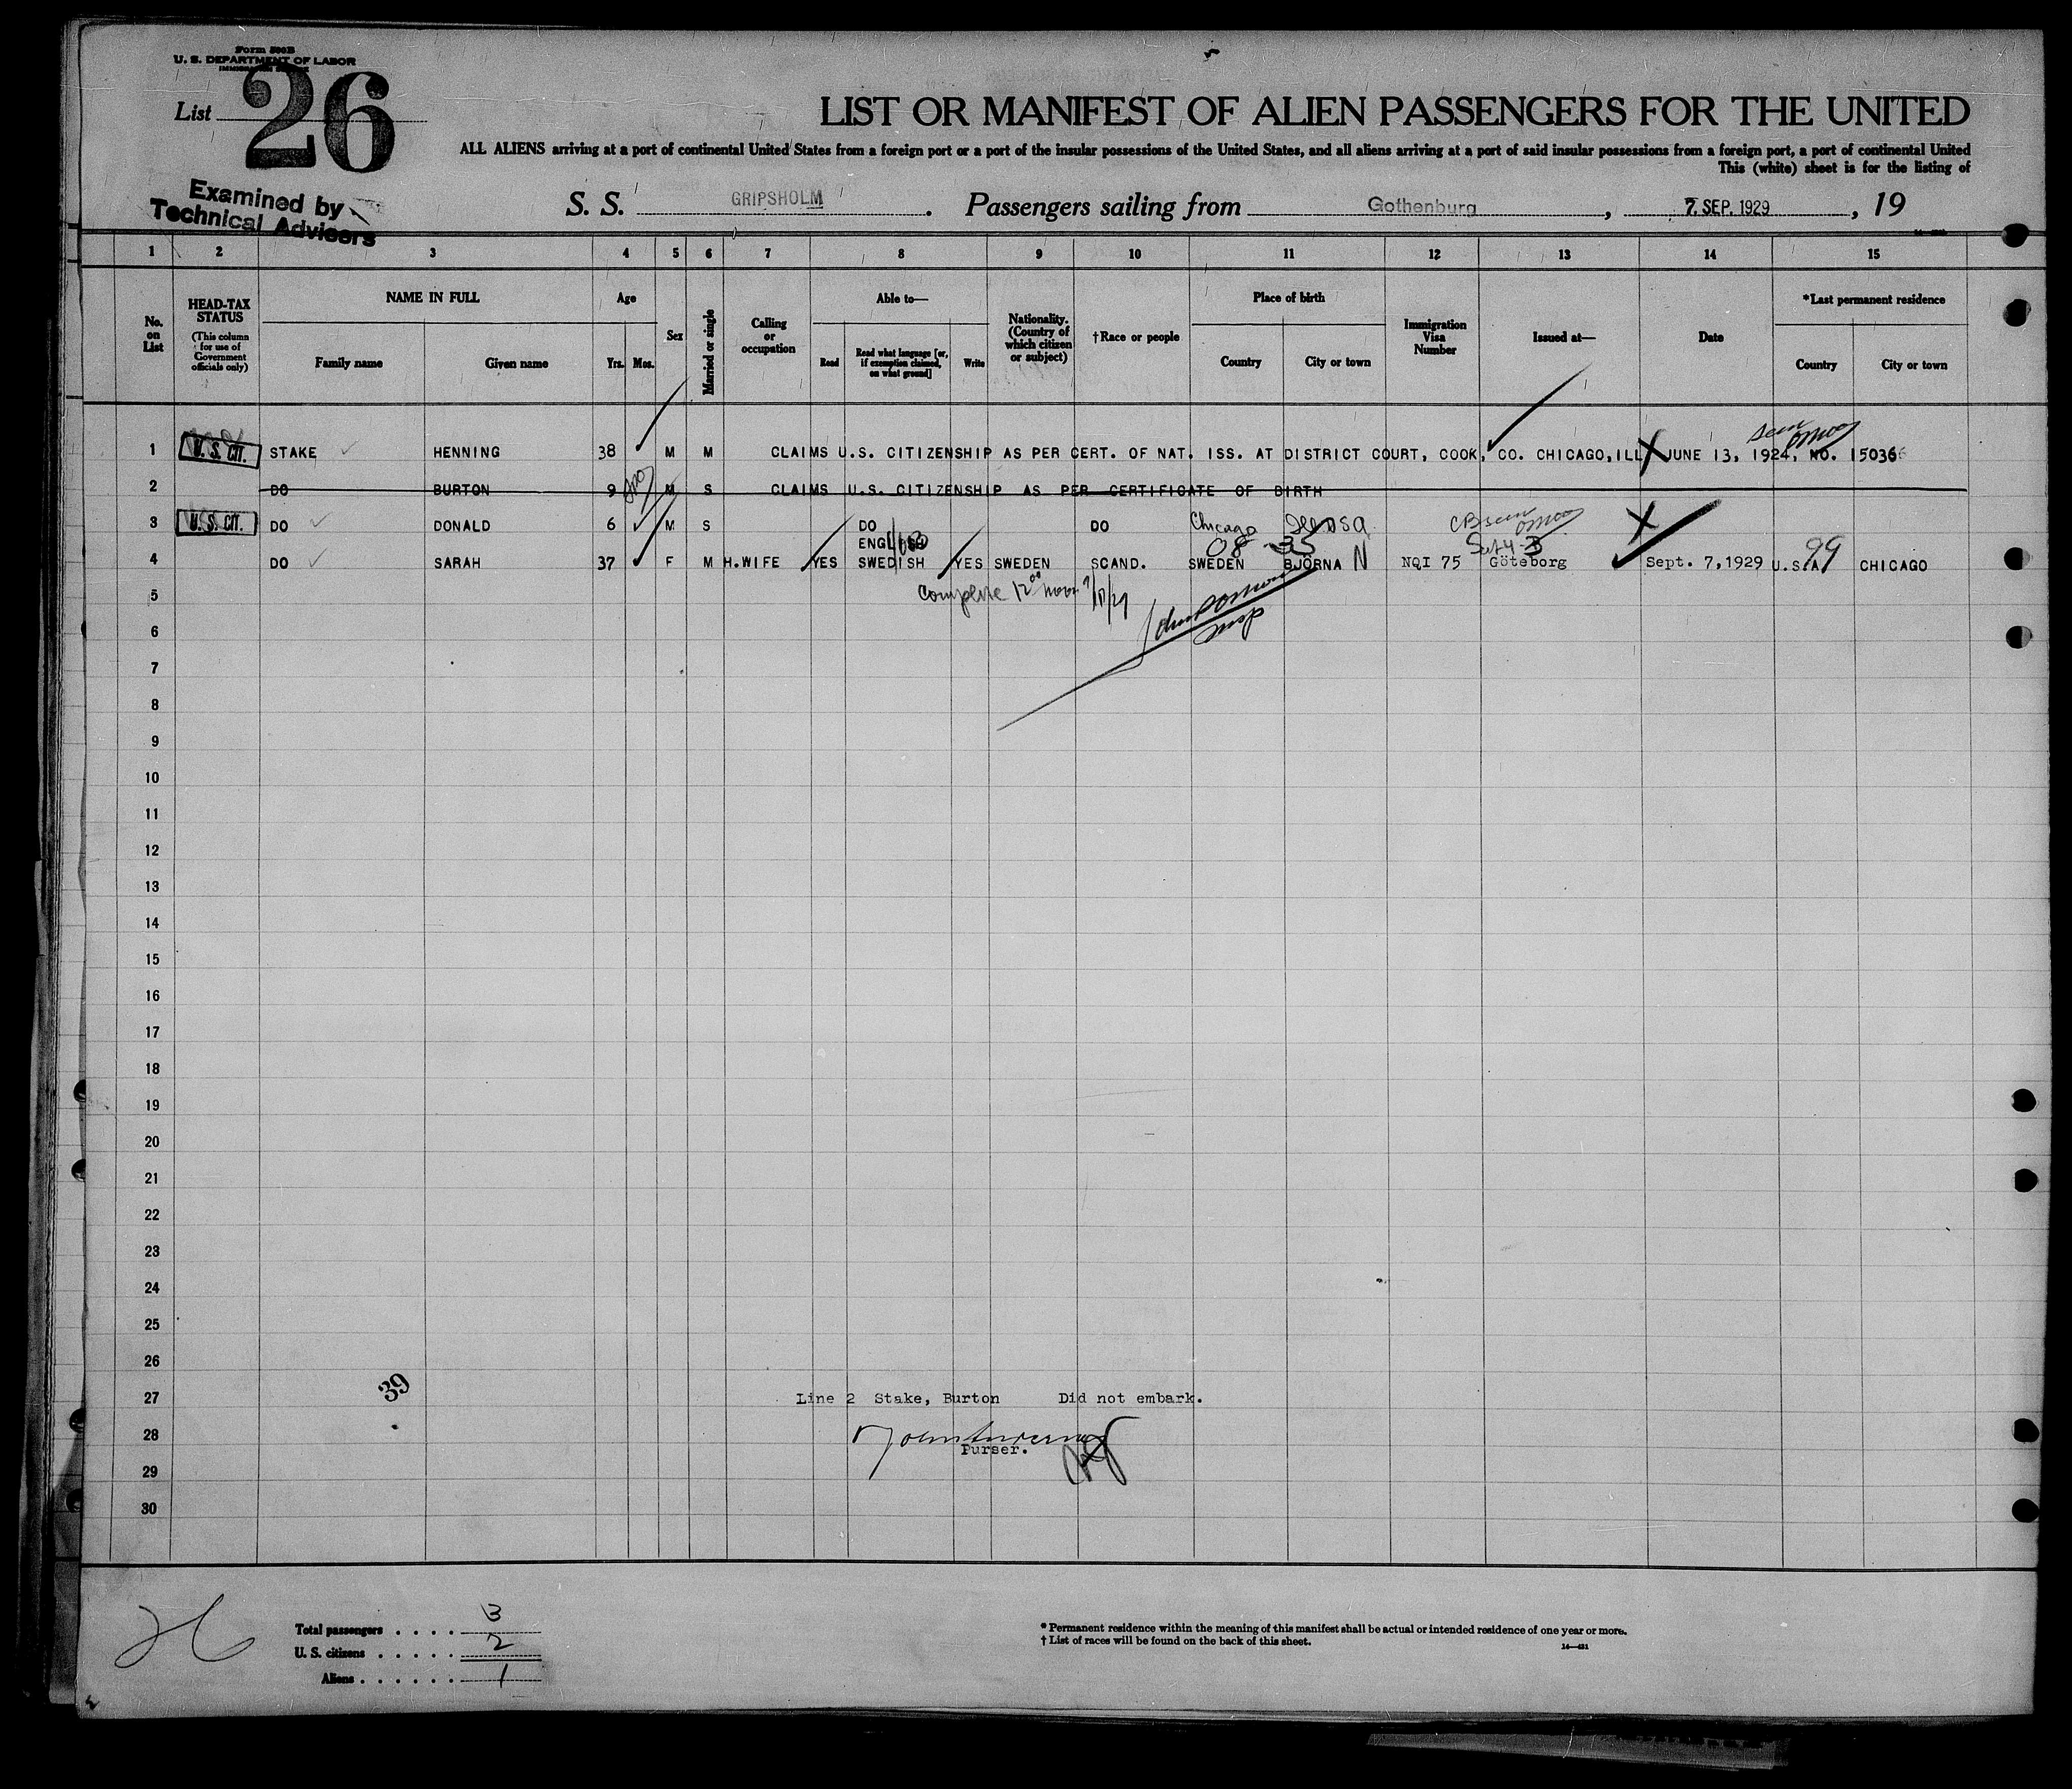 Form 500B
U. S. DEPARTMENT OF LABOR
List 26
LIST OR MANIFEST OF ALIEN PASSENGERS FOR THE UNITED
ALL ALIENS arriving at a port of continental United States from a foreign port or a port of the insular possessions of the United States, and all aliens arriving at a port of said insular possessions from a foreign port, a port of continental United
This (white) sheet is for the listing of
Examined by
Technical Advisers
S. S. GRIPSHOLM. Passengers sailing from Gothenburg, 7. SEP. 1929, 19
1 2 3 4 5 6 7 8 9 10 11 12 13 14 15
No. on List
HEAD-TAX STATUS
(This column for use of Government officials only)
NAME IN FULL
Family name
Given name
Age
Yrs. Mos.
Sex
Married or single
Calling or occupation
Able to—
Read
Read what language [or, if exemption claimed, on what ground]
Write
Nationality. (Country of which citizen or subject)
†Race or people
Place of birth
Country
City or town
Immigration Visa Number
Issued at—
Date
*Last permanent residence
Country
City or town
1 U. S. CIT. STAKE HENNING 38 M M CLAIMS U.S. CITIZENSHIP AS PER CERT. OF NAT. ISS. AT DISTRICT COURT, COOK, CO. CHICAGO, ILL JUNE 13, 1924, NO. 15036
2 DO BURTON 9 M S CLAIMS U.S. CITIZENSHIP AS PER CERTIFICATE OF BIRTH
3 U. S. CIT. DO DONALD 6 M S DO DO Chicago
ENGLISH 08 35
4 DO SARAH 37 F M H.WIFE YES SWEDISH YES SWEDEN SCAND. SWEDEN BJÖRNA N NQI 75 Göteborg Sept. 7, 1929 U.S.A. 99 CHICAGO
5 Complete 12 00 noon
6
7
8
9
10
11
12
13
14
15
16
17
18
19
20
21
22
23
24
25
26
39
27 Line 2 Stake, Burton Did not embark.
28
Purser.
29
30
26
Total passengers . . . . 3
U. S. citizens . . . . . 2
Aliens . . . . . . 1
* Permanent residence within the meaning of this manifest shall be actual or intended residence of one year or more.
† List of races will be found on the back of this sheet.